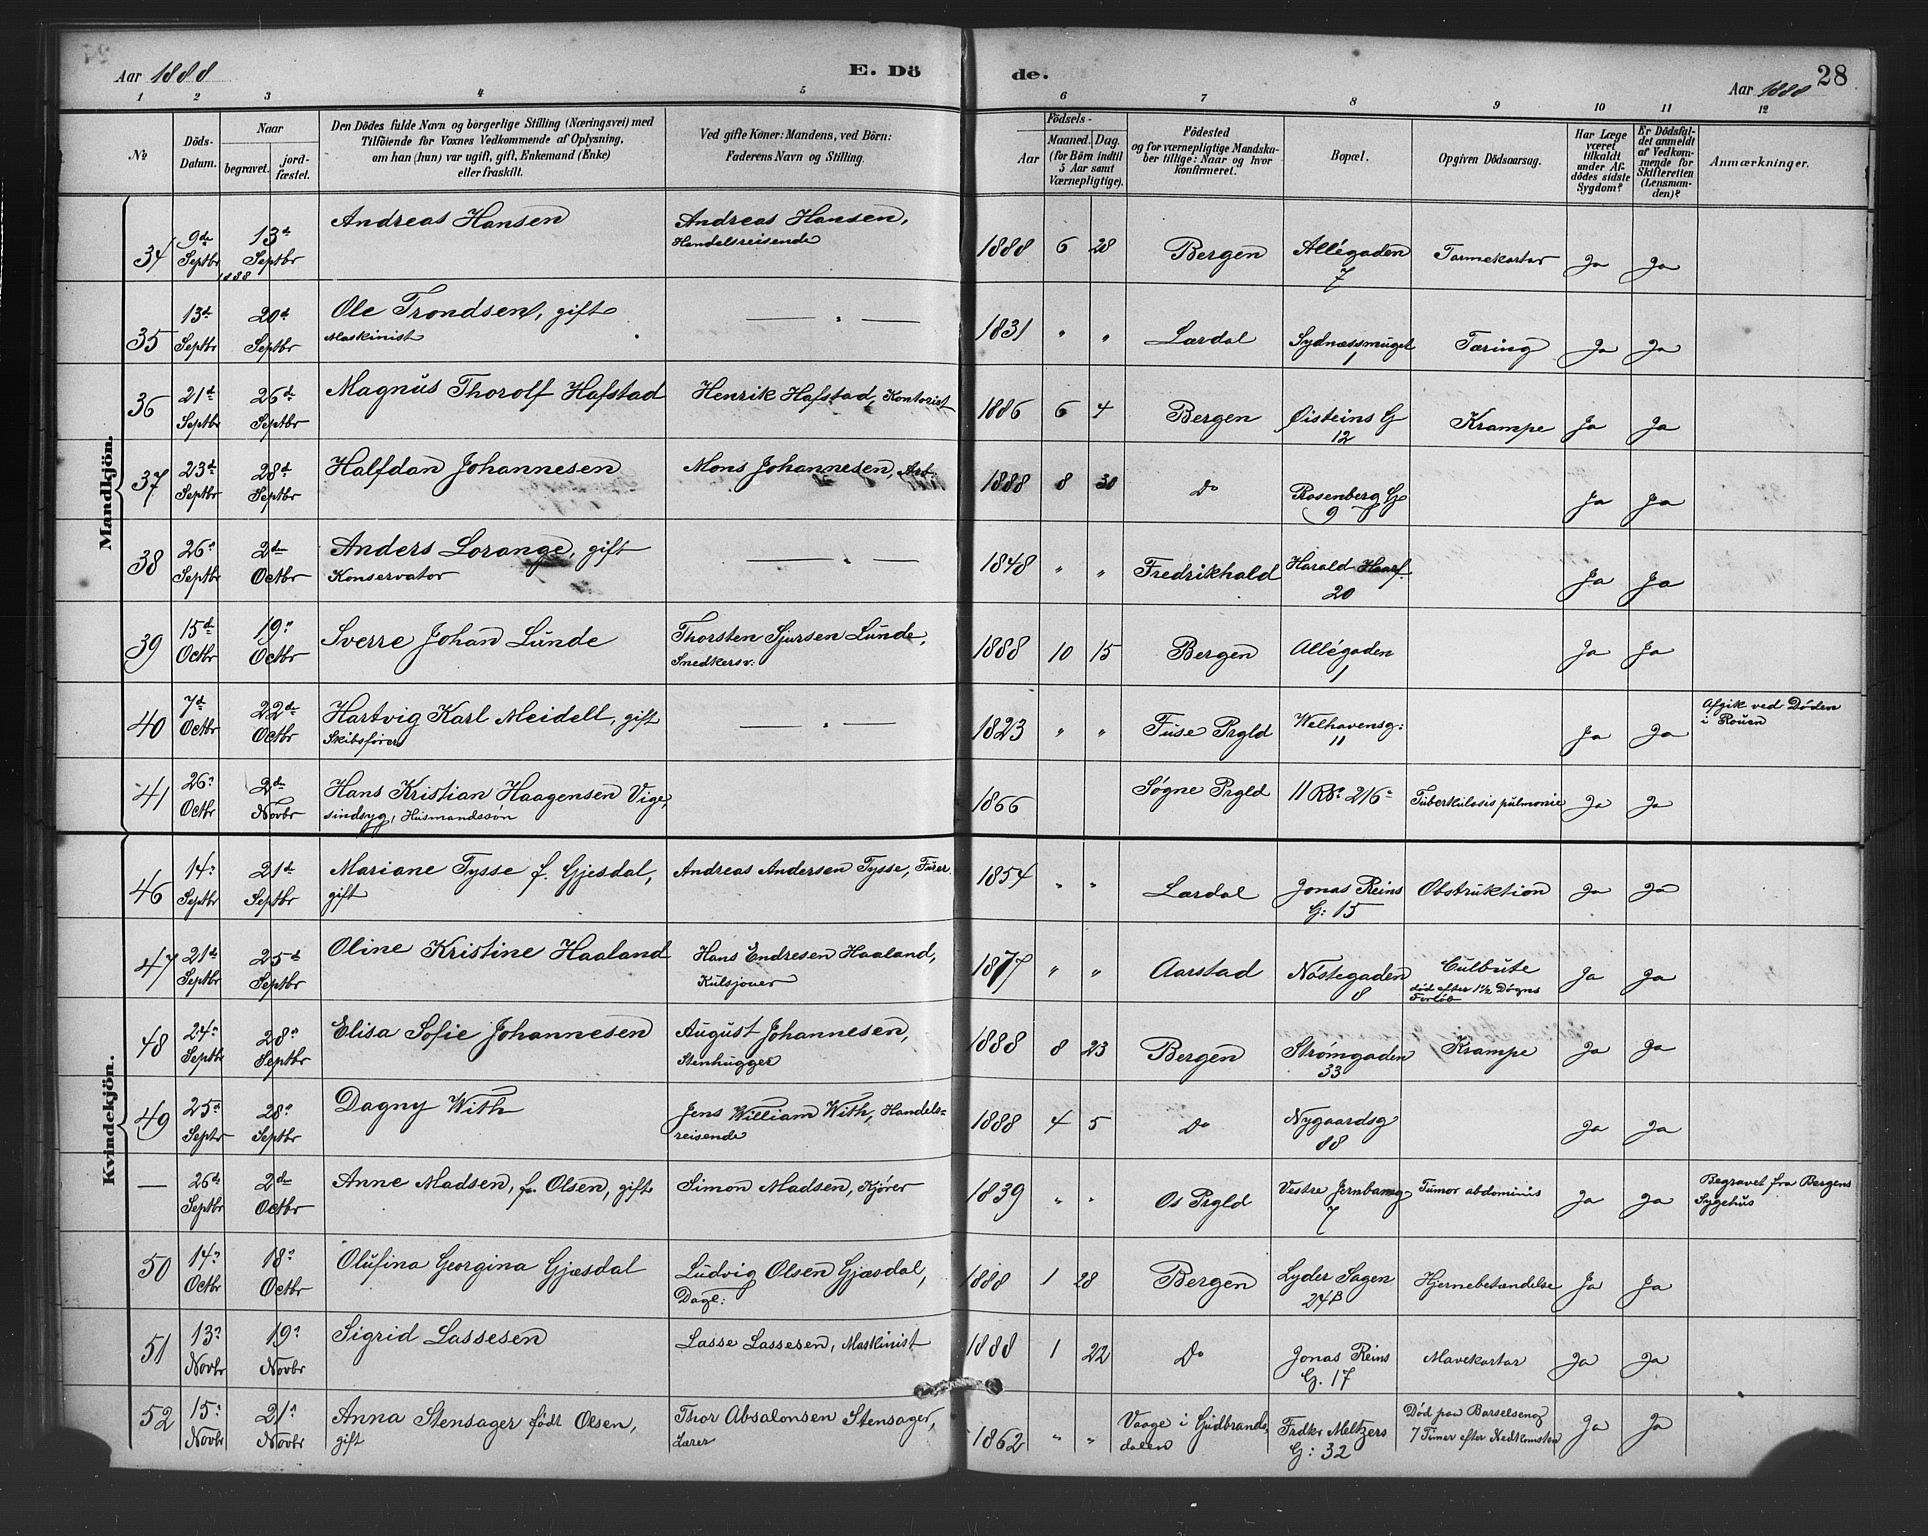 Aar 1888
E. Dö
de.
Aar 1888
28
1 2 3 4 5 6 7 8 9 10 11 12
No
Döds-Datum.
Naar
begravet.
jord-fæstet.
Den Dödes fulde Navn og borgerlige Stilling (Næringsvei) med
Tilföiende for Voxnes Vedkommende af Oplysning,
om han (hun) var ugift, gift, Enkemand (Enke)
eller fraskilt.
Ved gifte Koner: Mandens, ved Börn:
Faderens Navn og Stilling.
Födsels-
Aar
Maaned. Dag.
(for Börn indtil
5 Aar samt
Værnepligtige).
Födested
og for værnepligtige Mandska-
ber tillige: Naar og hvor
konfirmeret.
Bopæl.
Opgiven Dödsaarsag.
Har Læge
været
tilkaldt
under Af-
dödes sidste
Sygdom?
Er Dödsfal-
det anmeldt
af Vedkom-
mende for
Skifteretten
(Lensman-
den)?
Anmærkninger.
Mandkjön.
34 9de Septbr 1888 13de Septbr Andreas Hansen Andreas Hansen, Handelsreisende 1888 6 28 Bergen Allégaden 7 Tarmekatar Ja Ja
35 13de Septbr 20de Septbr Ole Trondsen, gift Maskinist — " — 1831 " " Lærdal Sydnæssmuget 1 Tæring Ja Ja
36 21de Septbr 26de Septbr Magnus Thorolf Hafstad Henrik Hafstad, Kontorist 1886 6 4 Bergen Øisteins G 12 Krampe Ja Ja
37 23de Septbr 28de Septbr Halfdan Johannesen Mons Johannesen, Arb: 1888 8 30 Do Rosenberg G 9 Ja Ja
38 26de Septbr 2den Octbr Anders Lorange, gift Konservator — " — 1848 " " Fredrikhald Harald Haarf. 20 Ja Ja
39 15de Octbr 19de Octbr Sverre Johan Lunde Thorsten Sjursen Lunde, Snedkersv: 1888 10 15 Bergen Allégaden 1 Ja Ja
40 7de Octbr 22de Octbr Hartvig Karl Meidell, gift Skibsfører — " — 1823 " " Fuse Prgld Welhavensg: 11 Ja Ja Afgik ved Døden i Rouen
41 26de Octbr 2den Novbr Hans Kristian Haagensen Vige, sindsyg, Husmandssøn 1866 Søgne Prgld 11 Rd. 216 Tuberkulosis pulmonie Ja Ja
Kvindekjön.
46 14de Septbr 21de Septbr Mariane Tysse f. Gjesdal, gift Andreas Andersen Tysse, Furer. 1854 " " Lærdal Jonas Reins G: 15 Obstruktion Ja Ja
47 21de Septbr 25de Septbr Oline Kristine Haaland Hans Endresen Haaland, Kulsjouer 1877 " " Aarstad Nöstegaden 8 Culbute død efter 1½ Døgns Forløb Ja Ja
48 24de Septbr 28de Septbr Elisa Sofie Johannesen August Johannesen, Stenhugger 1888 8 23 Bergen Strømgaden 33 Krampe Ja Ja
49 25de Septr 28de Septbr Dagny With Jens William With, Handels=reisende 1888 4 5 Do Nygaardsg 88 Ja Ja
— 26de Septbr 2den Octbr Anne Madsen, f. Olsen, gift Simon Madsen, Kjører 1839 " " Os Prgld Vestre Jernbaneg 7 Tumor abdominis Ja Ja Begravet fra Bergens Sygehus
50 14de Octbr 18de Octbr Olufina Georgina Gjæsdal Ludvig Olsen Gjæsdal, Dagl: 1888 1 28 Bergen Lyder Sagen 24B Hjernebetændelse Ja Ja
51 13de Novbr 19de Novbr Sigrid Lassesen Lasse Lassesen, Maskinist 1888 1 22 Do Jonas Reins G. 17 Mavekatar Ja Ja
52 15de Novbr 21de Novbr Anna Stensager født Olsen, gift Thor Absalonsen Stensager, Lærer 1862 " " Vaage i Gudbrands-dalen Frdkr Meltzers G: 32 Død paa Barselseng 7 Timer efter Nedkomsten Ja Ja